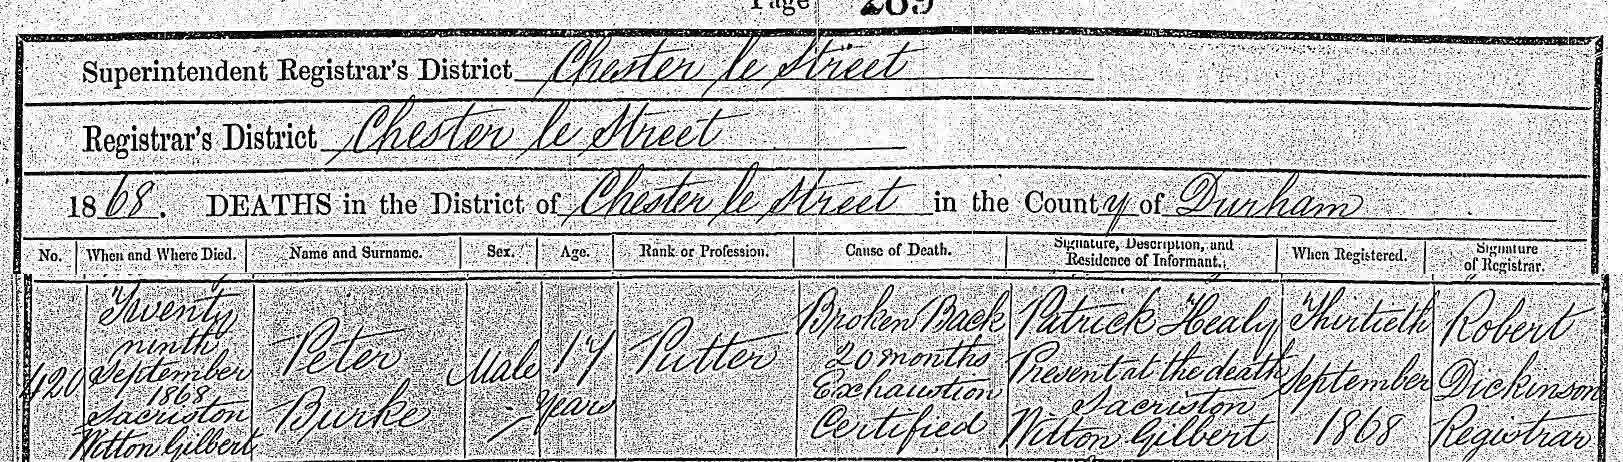 Page 289
Superintendent Registrar's District Chester le Street
Registrar's District Chester le Street
1868. DEATHS in the District of Chester le Street in the County of Durham
No. When and Where Died. Name and Surname. Sex. Age. Rank or Profession. Cause of Death. Signature, Description, and Residence of Informant. When Registered. Signature of Registrar.
420
Twenty
ninth
September
1868
Sacriston
Witton Gilbert
Peter
Burke
Male
17
years
Putter
Broken Back
20 months
Exhaustion
Certified
Patrick Healy
Present at the death
Sacriston
Witton Gilbert
Thirtieth
September
1868
Robert
Dickinson
Registrar